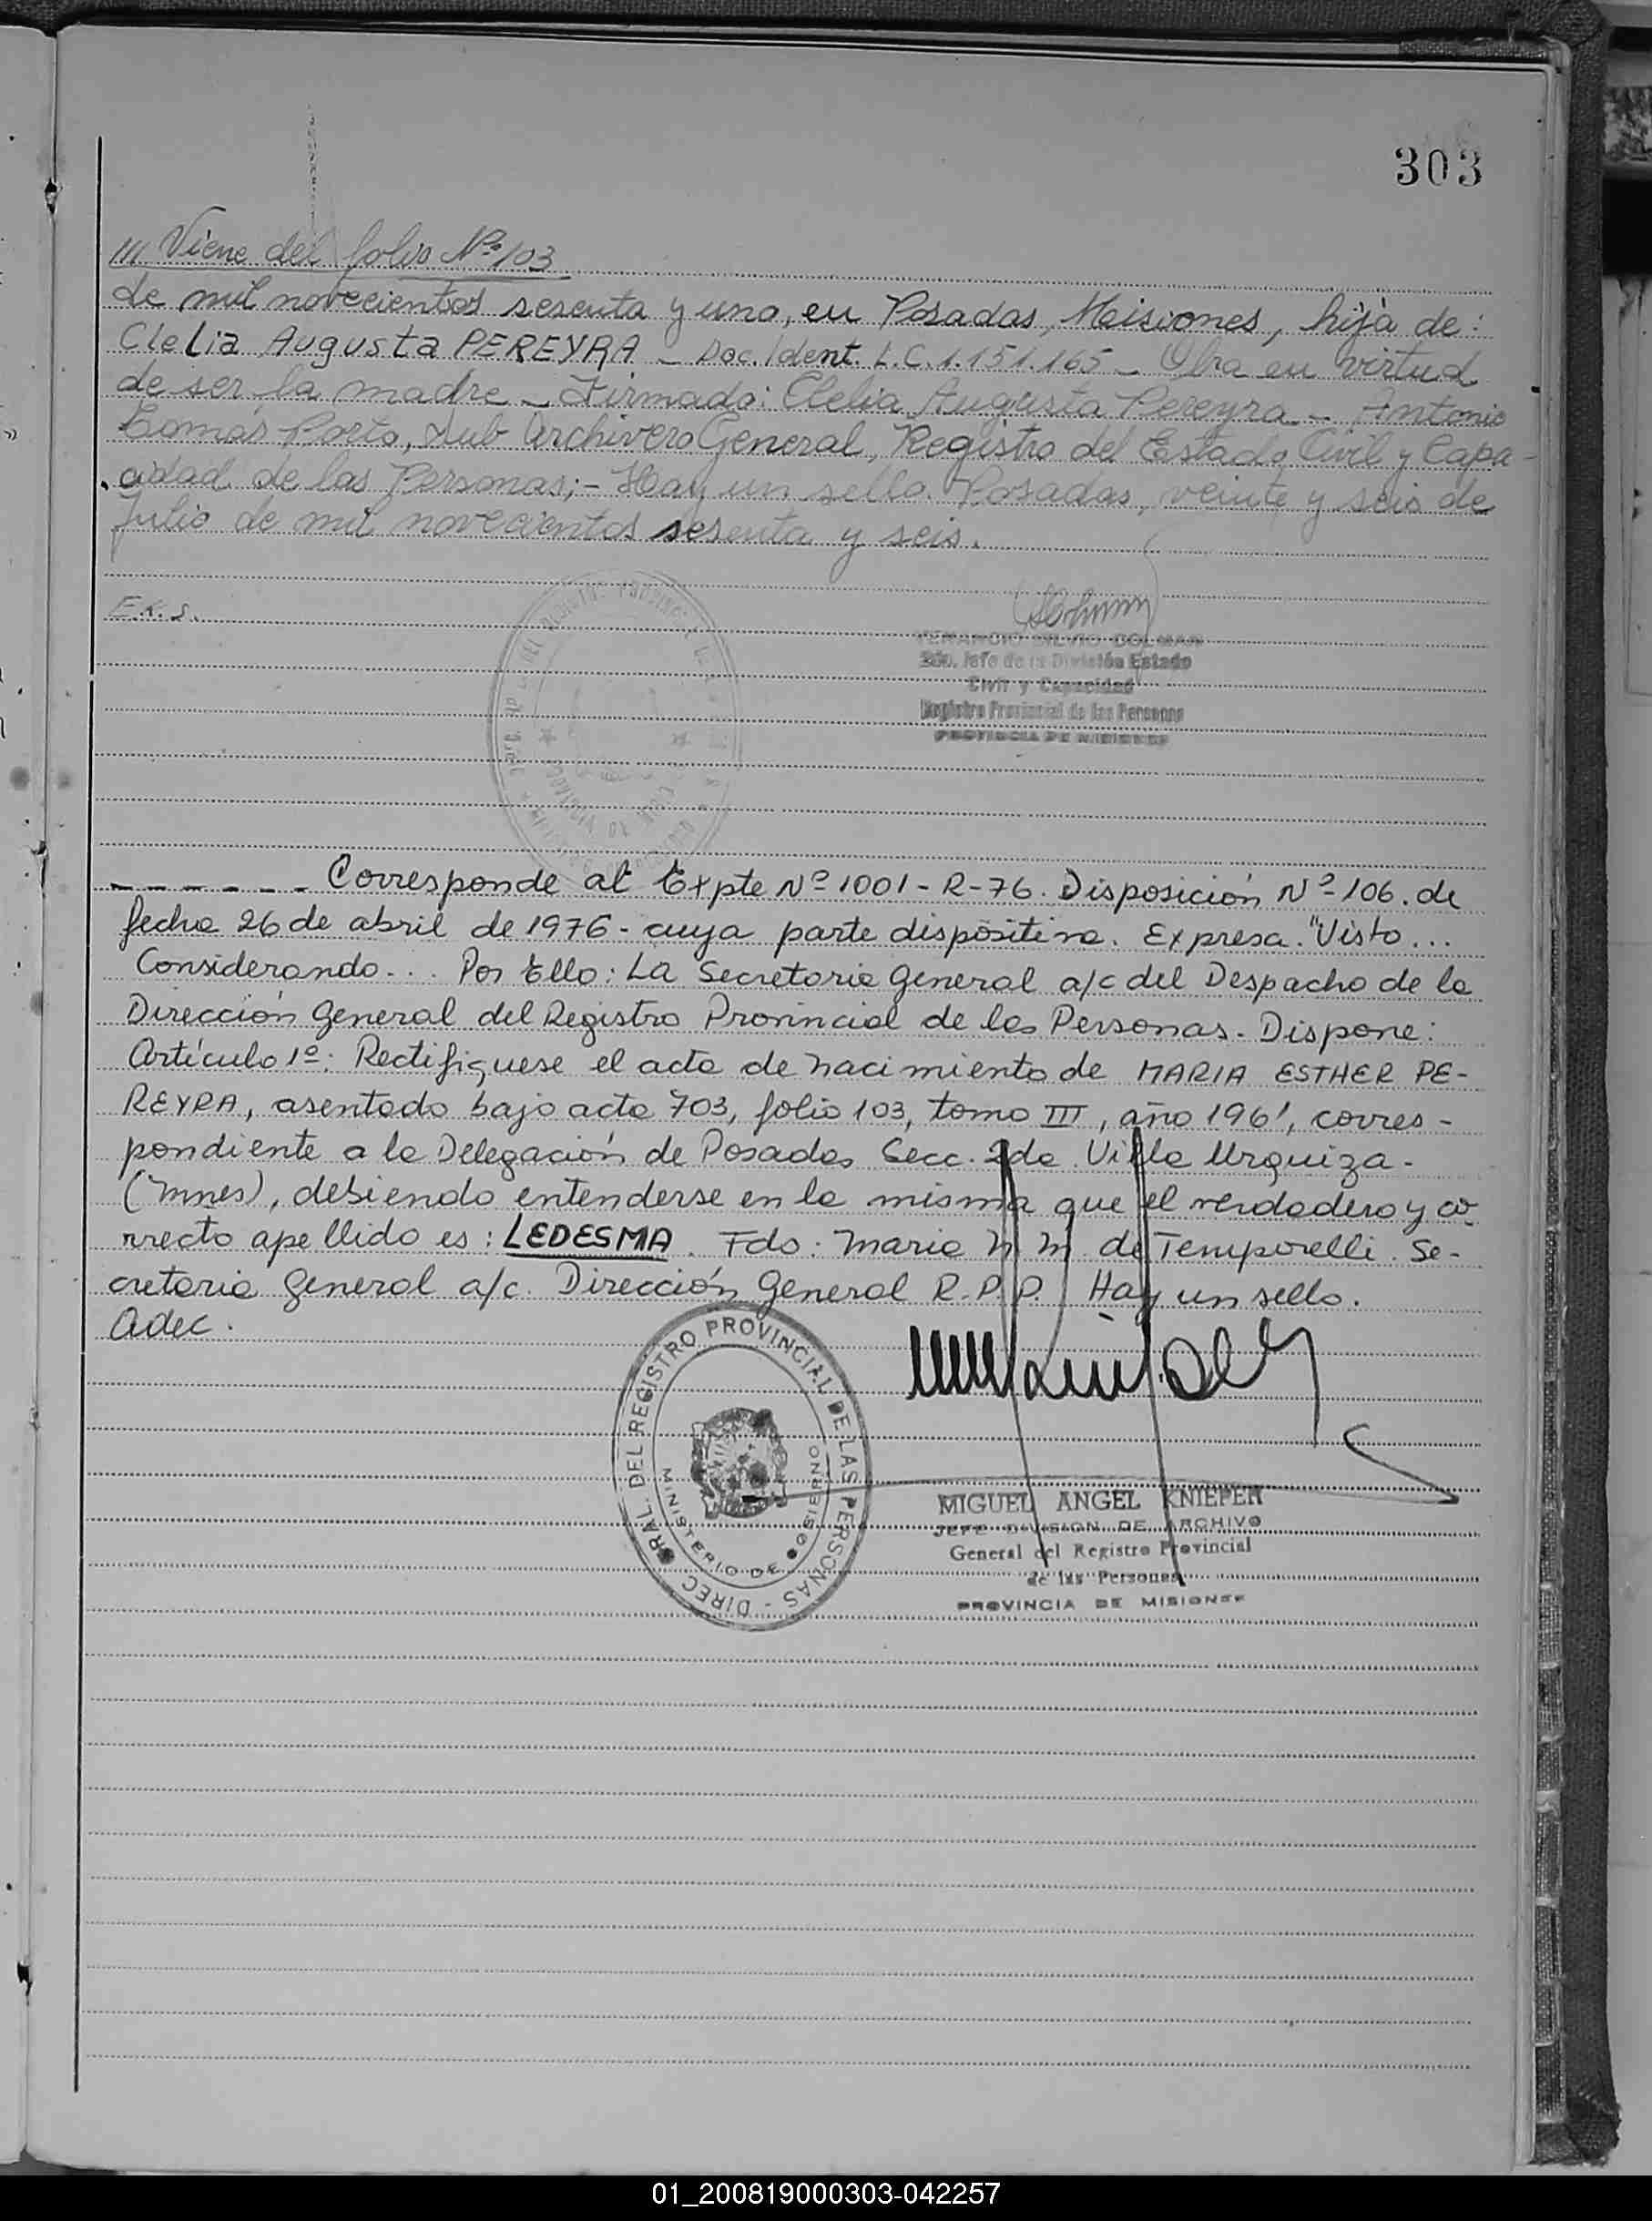 303
/// Viene del folio Nº 103
de mil novecientos sesenta y uno, en Posadas, Misiones, hija de:
Clelia Augusta PEREYRA - Doc. Ident. L.C. 1.151.165 - Obra en virtud
de ser la madre - Firmado: Clelia Augusta Pereyra - Antonio
Tomás Porto, Sub Archivero General, Registro del Estado Civil y Capa-
cidad de las Personas; - Hay un sello. Posadas, veinte y seis de
Julio de mil novecientos sesenta y seis.
E.K.S.
VENANCIO SILVIO DOLMAN
2do. Jefe de la División Estado
Civil y Capacidad
Registro Provincial de las Personas
PROVINCIA DE MISIONES
------ Corresponde al Expte Nº 1001-R-76. Disposición Nº 106. de
fecha 26 de abril de 1976 - cuya parte dispositiva. Expresa. "Visto...
Considerando... Por Ello: La Secretaria General a/c del Despacho de la
Dirección General del Registro Provincial de las Personas. Dispone:
Artículo 1º: Rectifiquese el acta de nacimiento de MARIA ESTHER PE-
REYRA, asentada bajo acta 703, folio 103, tomo III, año 1961, corres-
pondiente a la Delegación de Posadas Secc. 2da Villa Urquiza.
(Mnes), debiendo entenderse en la misma que el verdadero y co-
rrecto apellido es: LEDESMA. Fdo: Maria N M de Temporelli. Se-
cretaria General a/c. Dirección General R.P.P. Hay un sello.
Adec.
DIREC GRAL. DEL REGISTRO PROVINCIAL DE LAS PERSONAS -
MINISTERIO DE GOBIERNO
MIGUEL ANGEL KNIEPER
JEFE DIVISION DE ARCHIVO
General del Registro Provincial
de las Personas
PROVINCIA DE MISIONES
01_200819000303-042257